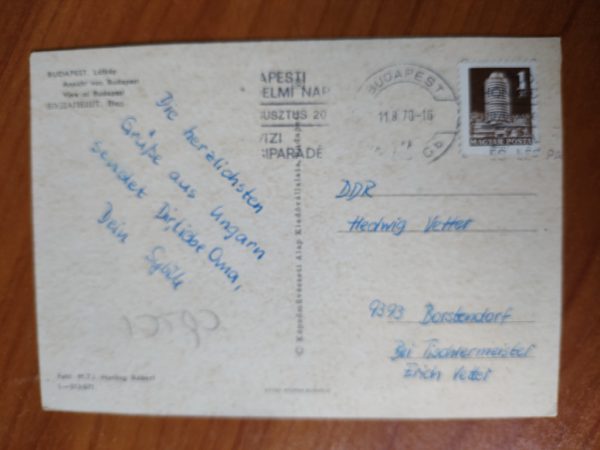 BUDAPEST. Látkép
Ansicht von Budapest
View of Budapest
БУДАПЕШТ.
Die herzlichsten
Grüße aus Ungarn
sendet Dir, liebe Oma,
Dein
APESTI
ELMI NAP
USZTUS 20
VIZI
PARADÉ
BUDAPEST
11.8 70-16
1
MAGYAR POSTA
© Képzőművészeti Alap Kiadóvállalata, Budapest
DDR
Hedwig Vetter
9393 Borstendorf
Bei Tischlermeister
Erich Vetter